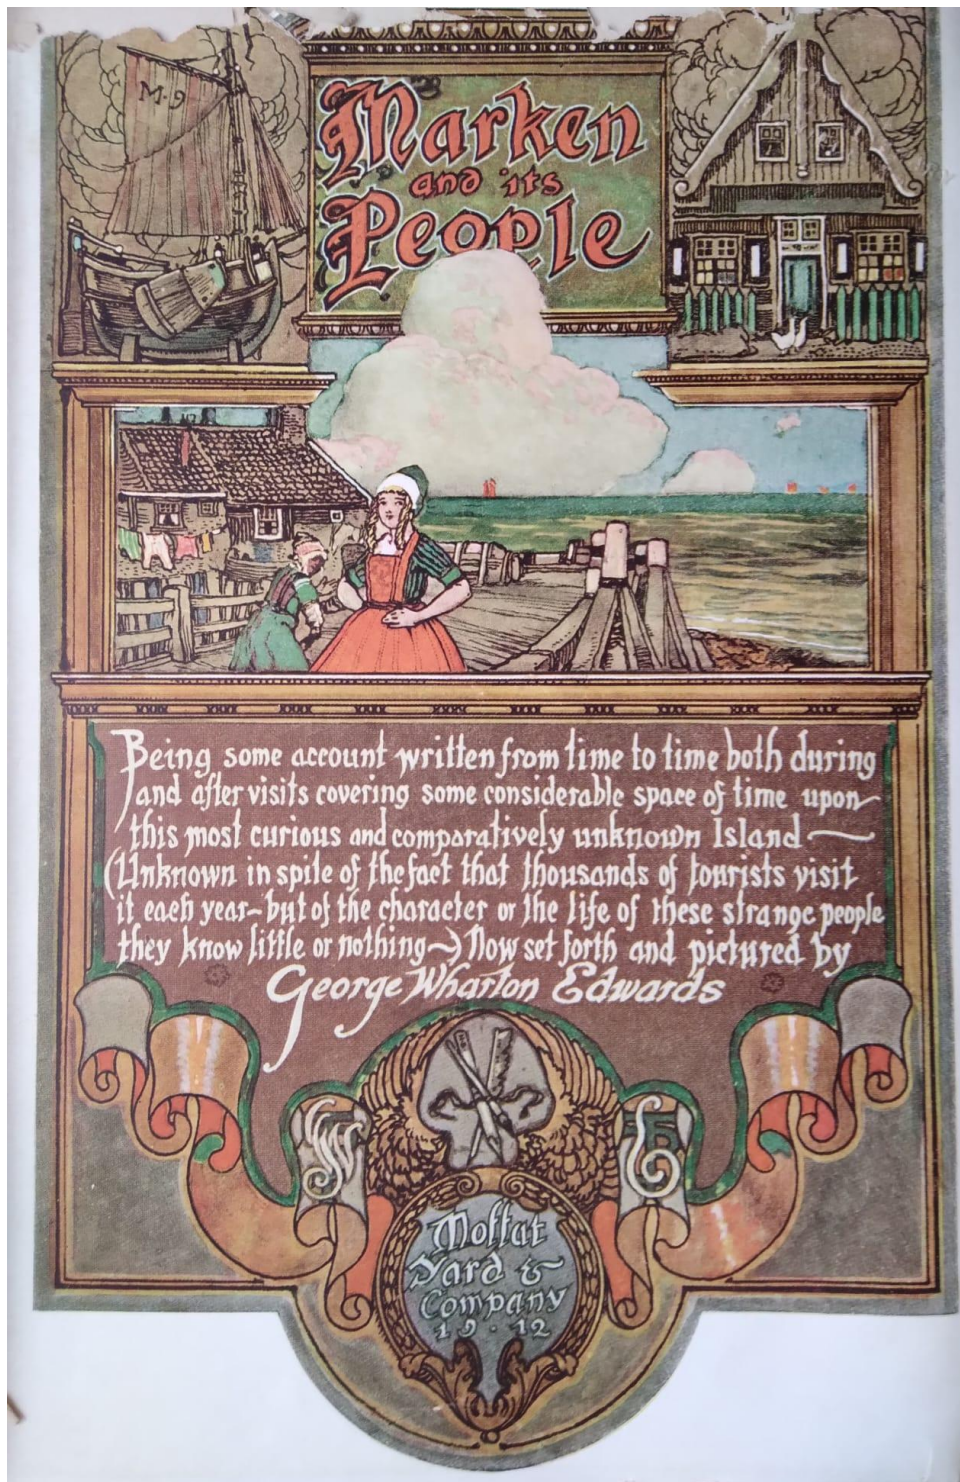 M·9
Marken
and its
People
Being some account written from time to time both during
and after visits covering some considerable space of time upon
this most curious and comparatively unknown Island —
(Unknown in spite of the fact that thousands of tourists visit
it each year – but of the character or the life of these strange people
they know little or nothing –) Now set forth and pictured by
George Wharton Edwards
Moffat
Yard &
Company
19·12